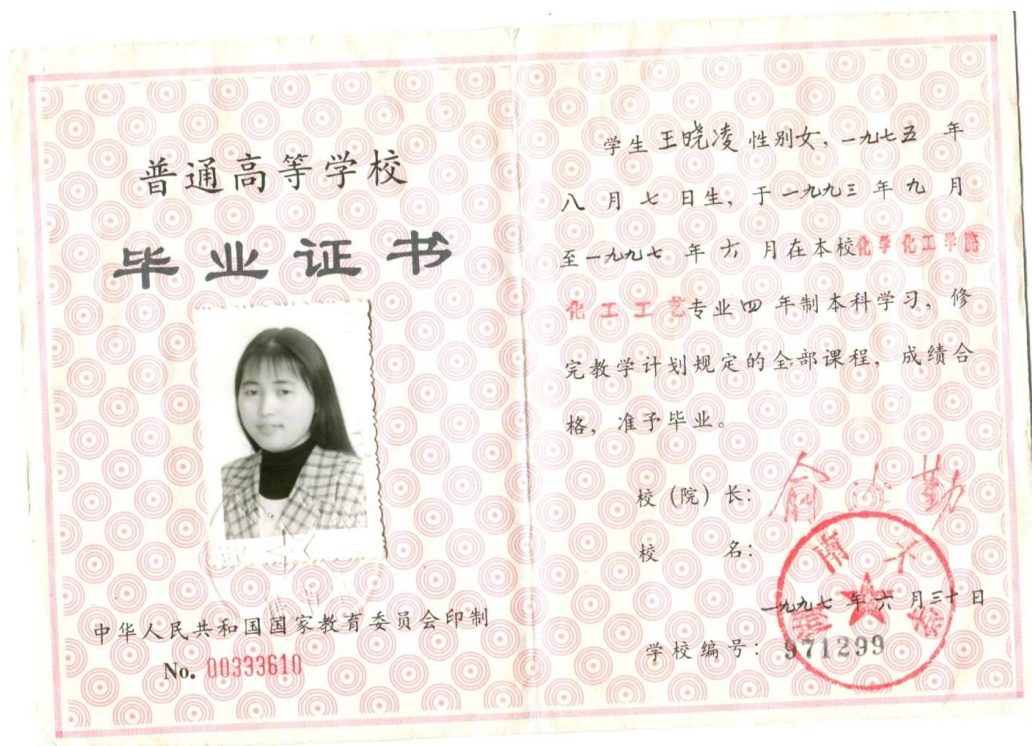 普通高等学校
毕业证书
中华人民共和国国家教育委员会印制
No. 00333610
学生 王晓凌 性别女，一九七五 年
八 月 七 日生，于 一九九三 年 九 月
至 一九九七 年 六 月在本校化学化工学院
化工工艺专业 四 年制本科学习，修
完教学计划规定的全部课程，成绩合
格，准予毕业。
校（院）长：
校 名：
一九九七 年 六 月 三十 日
学校编号：971299